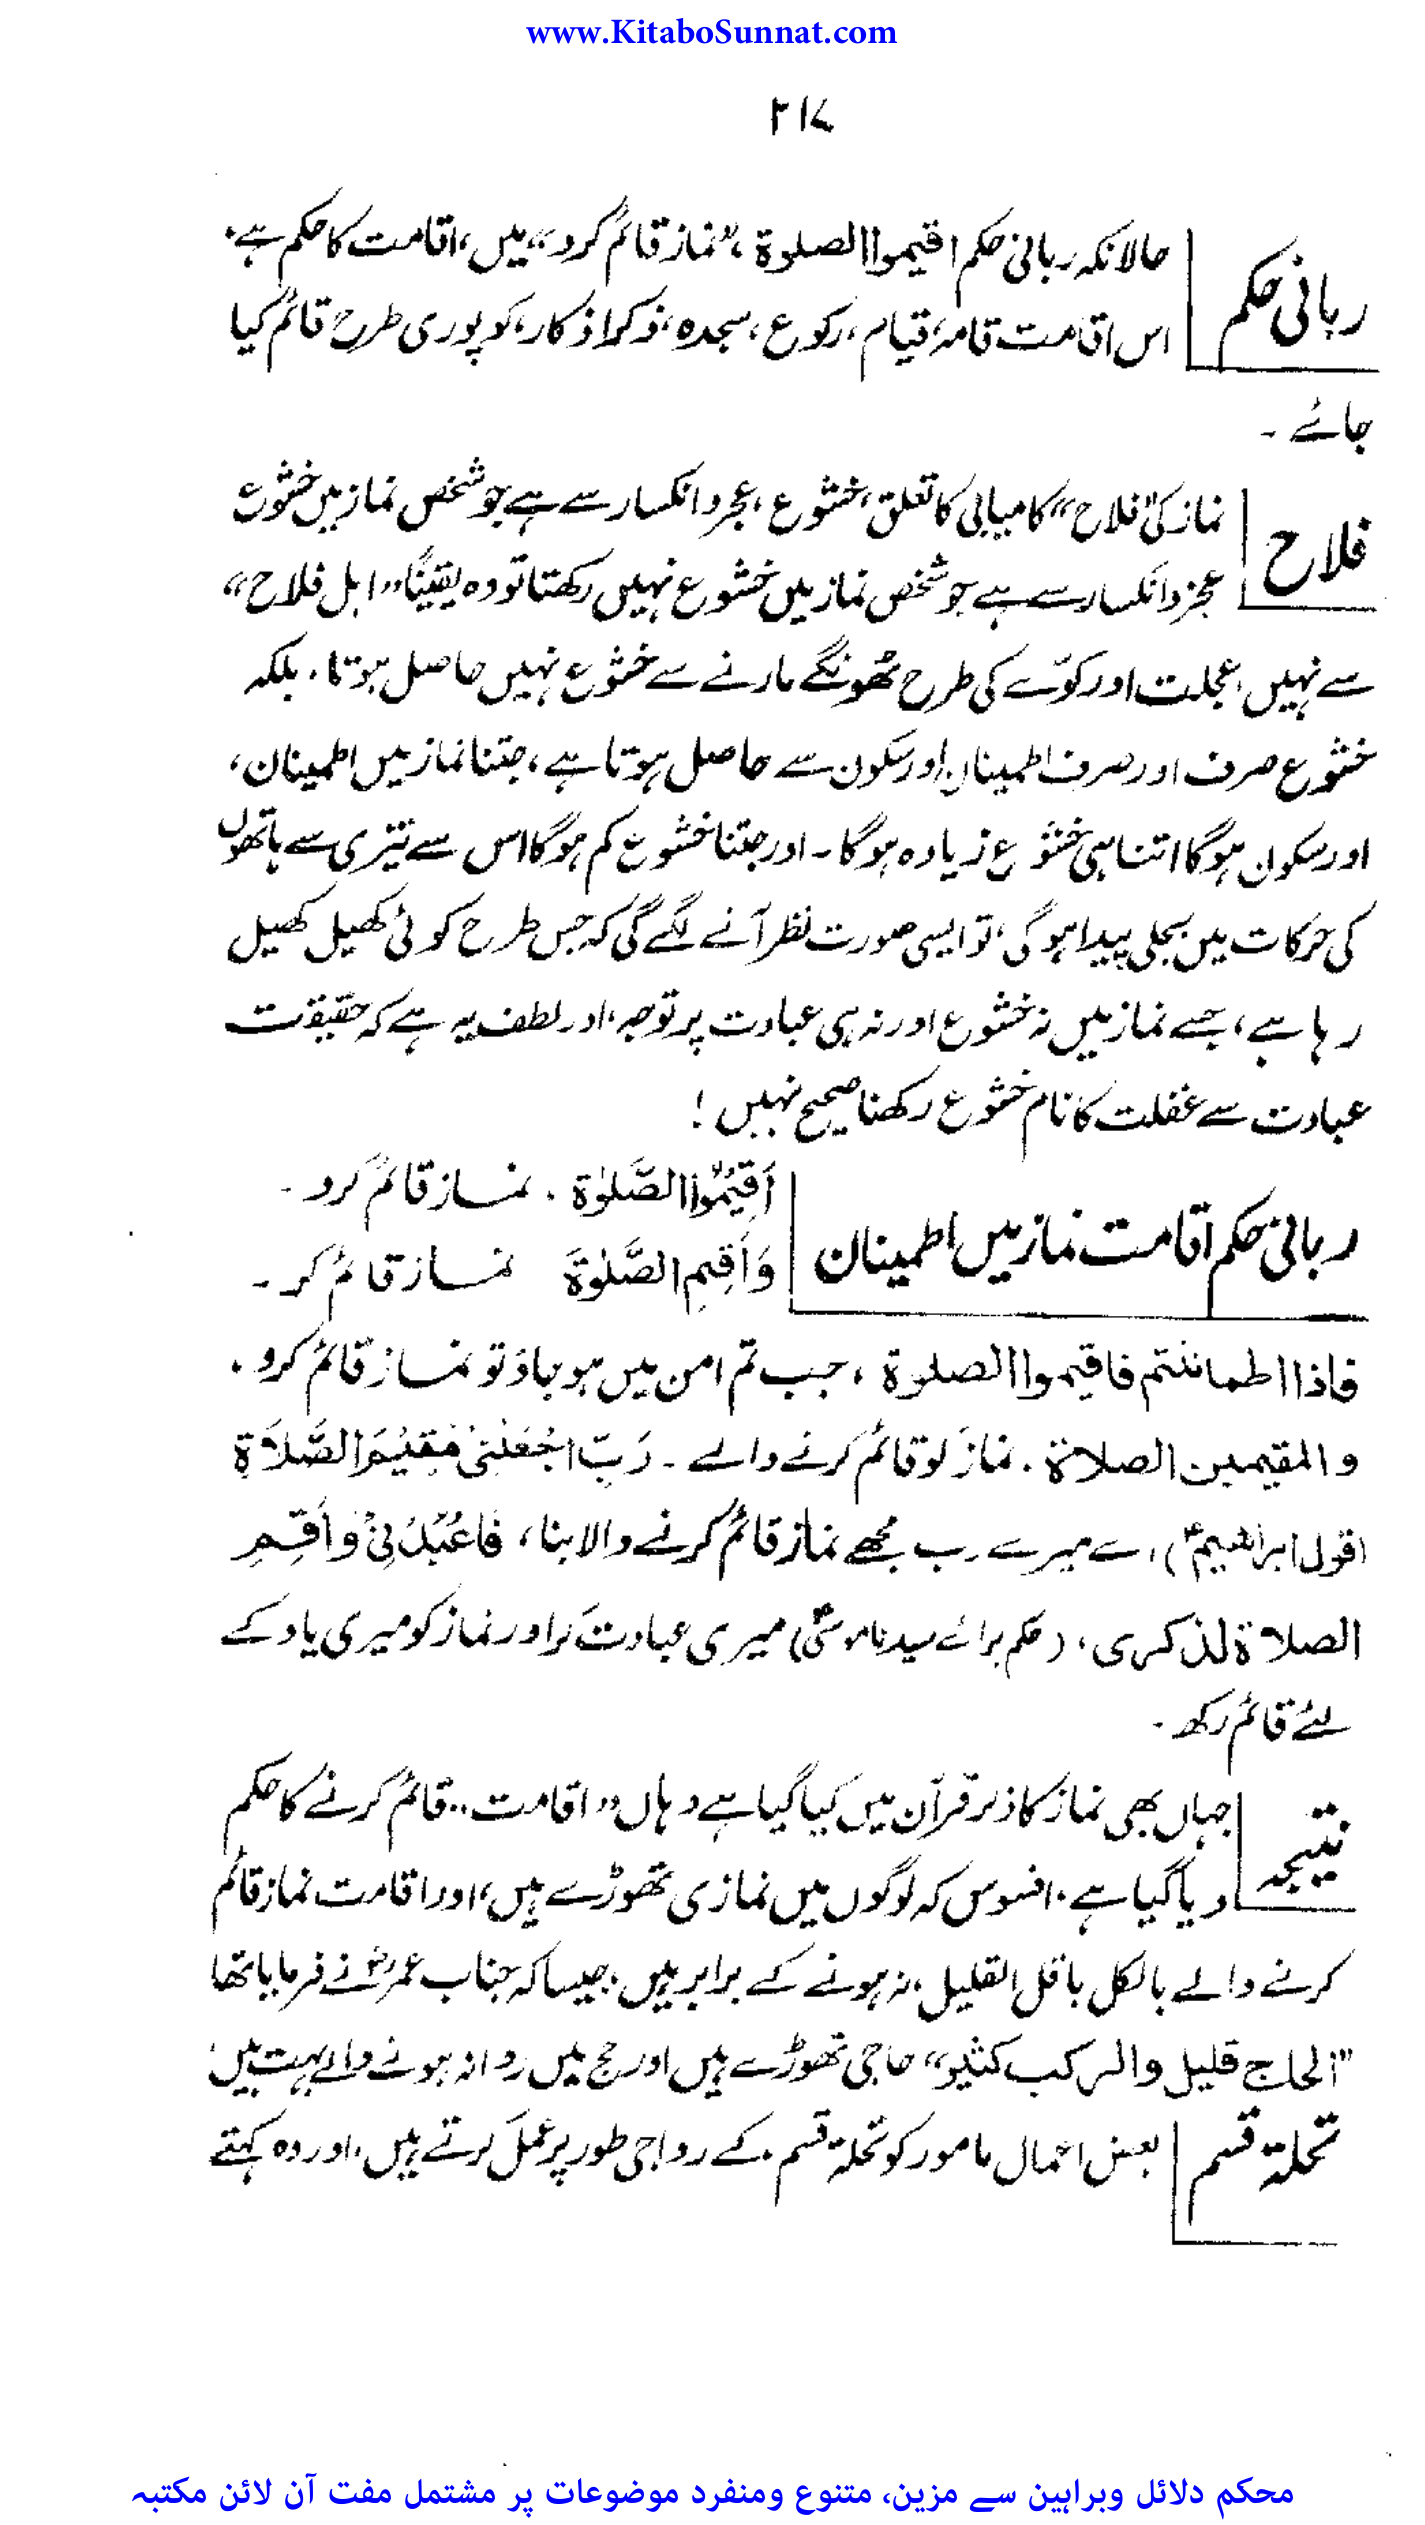 www.KitaboSunnat.com
۲۱۷
ربانی حکم
حالانکہ ربانی حکم اقیموا الصلوۃ ،،نماز قائم کرو،، میں، اقامت کا حکم ہے.
اس اقامت قامہ، قیام، رکوع، سجدہ، ذکر اذکار، کو پوری طرح قائم کیا
جائے ۔
فلاح
نماز کی "فلاح" کامیابی کا تعلق، خشوع، عجز و انکسار سے ہے جو شخص نماز میں خشوع
عجز و انکسار سے ہے جو شخص نماز میں خشوع نہیں رکھتا تو وہ یقیناً "اہل فلاح"
سے نہیں، عجلت اور کوّے کی طرح ٹھونگے مارنے سے خشوع نہیں حاصل ہوتا. بلکہ
خشوع صرف اور صرف اطمینان اور سکون سے حاصل ہوتا ہے، جتنا نماز میں اطمینان،
اور سکون ہوگا اتنا ہی خشوع زیادہ ہوگا ۔ اور جتنا خشوع کم ہوگا اس سے تیزی سے ہاتھوں
کی حرکات میں بجلی پیدا ہوگی، تو ایسی صورت نظر آنے لگے گی کہ جس طرح کوئی کھیل کھیل
رہا ہے، جسے نماز میں نہ خشوع اور نہ ہی عبادت پر توجہ، اور لطف یہ ہے کہ حقیقت
عبادت سے غفلت کا نام خشوع رکھنا صحیح نہیں !
ربانی حکم اقامت نماز میں اطمینان
أَقِيْمُوا الصَّلٰوۃ . نماز قائم کرو ۔
وَأَقِمِ الصَّلٰوۃَ نماز قائم کر ۔
فاذا اطماننتم فاقیموا الصلوۃ ، جب تم امن میں ہو جاؤ تو نماز قائم کرو .
والمقیمین الصلاۃ . نماز کو قائم کرنے والے ۔ رَبِّ اجْعَلْنِیْ مُقِیْمَ الصَّلَاۃِ
(قول ابراھیمؑ) اے میرے رب مجھے نماز قائم کرنے والا بنا، فَاعْبُدْنِیْ وَ أَقِمِ
الصلاۃ لذکری، (حکم برائے سیدنا موسیٰؑ) میری عبادت کر اور نماز کو میری یاد کے
لئے قائم رکھ ۔
نتیجہ
جہاں بھی نماز کا ذکر قرآن میں کیا گیا ہے وہاں "اقامت" قائم کرنے کا حکم
دیا گیا ہے. افسوس کہ لوگوں میں نمازی تھوڑے ہیں، اور اقامت نماز قائم
کرنے والے بالکل باقل القلیل، نہ ہونے کے برابر ہیں، جیسا کہ جناب عمرؓ نے فرمایا تھا
"الحاج قلیل والرکب کثیر" حاجی تھوڑے ہیں اور حج میں روانہ ہونے والے بہت ہیں
تحلۃ قسم
بعض اعمال مامور کو تحلۃ قسم. کے رواجی طور پر عمل کرتے ہیں، اور وہ کہتے
محکم دلائل وبراہین سے مزین، متنوع ومنفرد موضوعات پر مشتمل مفت آن لائن مکتبہ